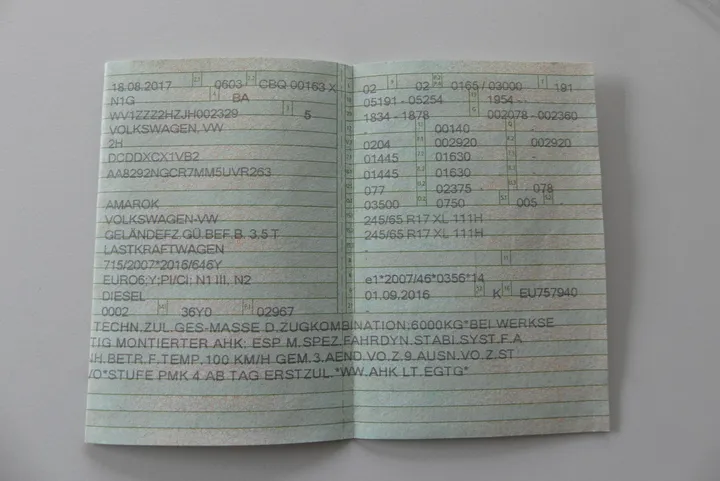 18.08.2017 0603 CBQ 00163 X
N1G BA
WV1ZZZ2HZJH002329 5
VOLKSWAGEN, VW
2H
DCDDXCX1VB2
AA8292NGCR7MM5UVR263
AMAROK
VOLKSWAGEN-VW
GELÄNDEFZ.GÜ.BEF.B. 3,5 T
LASTKRAFTWAGEN
715/2007*2016/646Y
EURO6;Y;PI/CI; N1 III, N2
DIESEL
0002 36Y0 02967
02 02 0165 / 03000 191
05191 - 05254 1954 -
1834 - 1878 002078 - 002360
- 00140 -
0204 002920 002920
01445 01630 -
01445 01630 -
077 02375 - 078
03500 0750 005 -
245/65 R17 XL 111H
245/65 R17 XL 111H
-
-
e1*2007/46*0356*14
01.09.2016 K EU757940
TECHN.ZUL.GES-MASSE D.ZUGKOMBINATION:6000KG*BEI WERKSE
TIG MONTIERTER AHK: ESP M.SPEZ.FAHRDYN.STABI.SYST.F.A
NH.BETR.F.TEMP.100 KM/H GEM.3.AEND.VO.Z.9.AUSN.VO.Z.ST
VO*STUFE PMK 4 AB TAG ERSTZUL.*WW.AHK LT.EGTG*